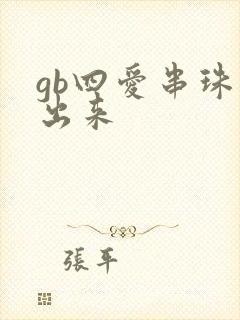 gb四愛串珠
出来
張平